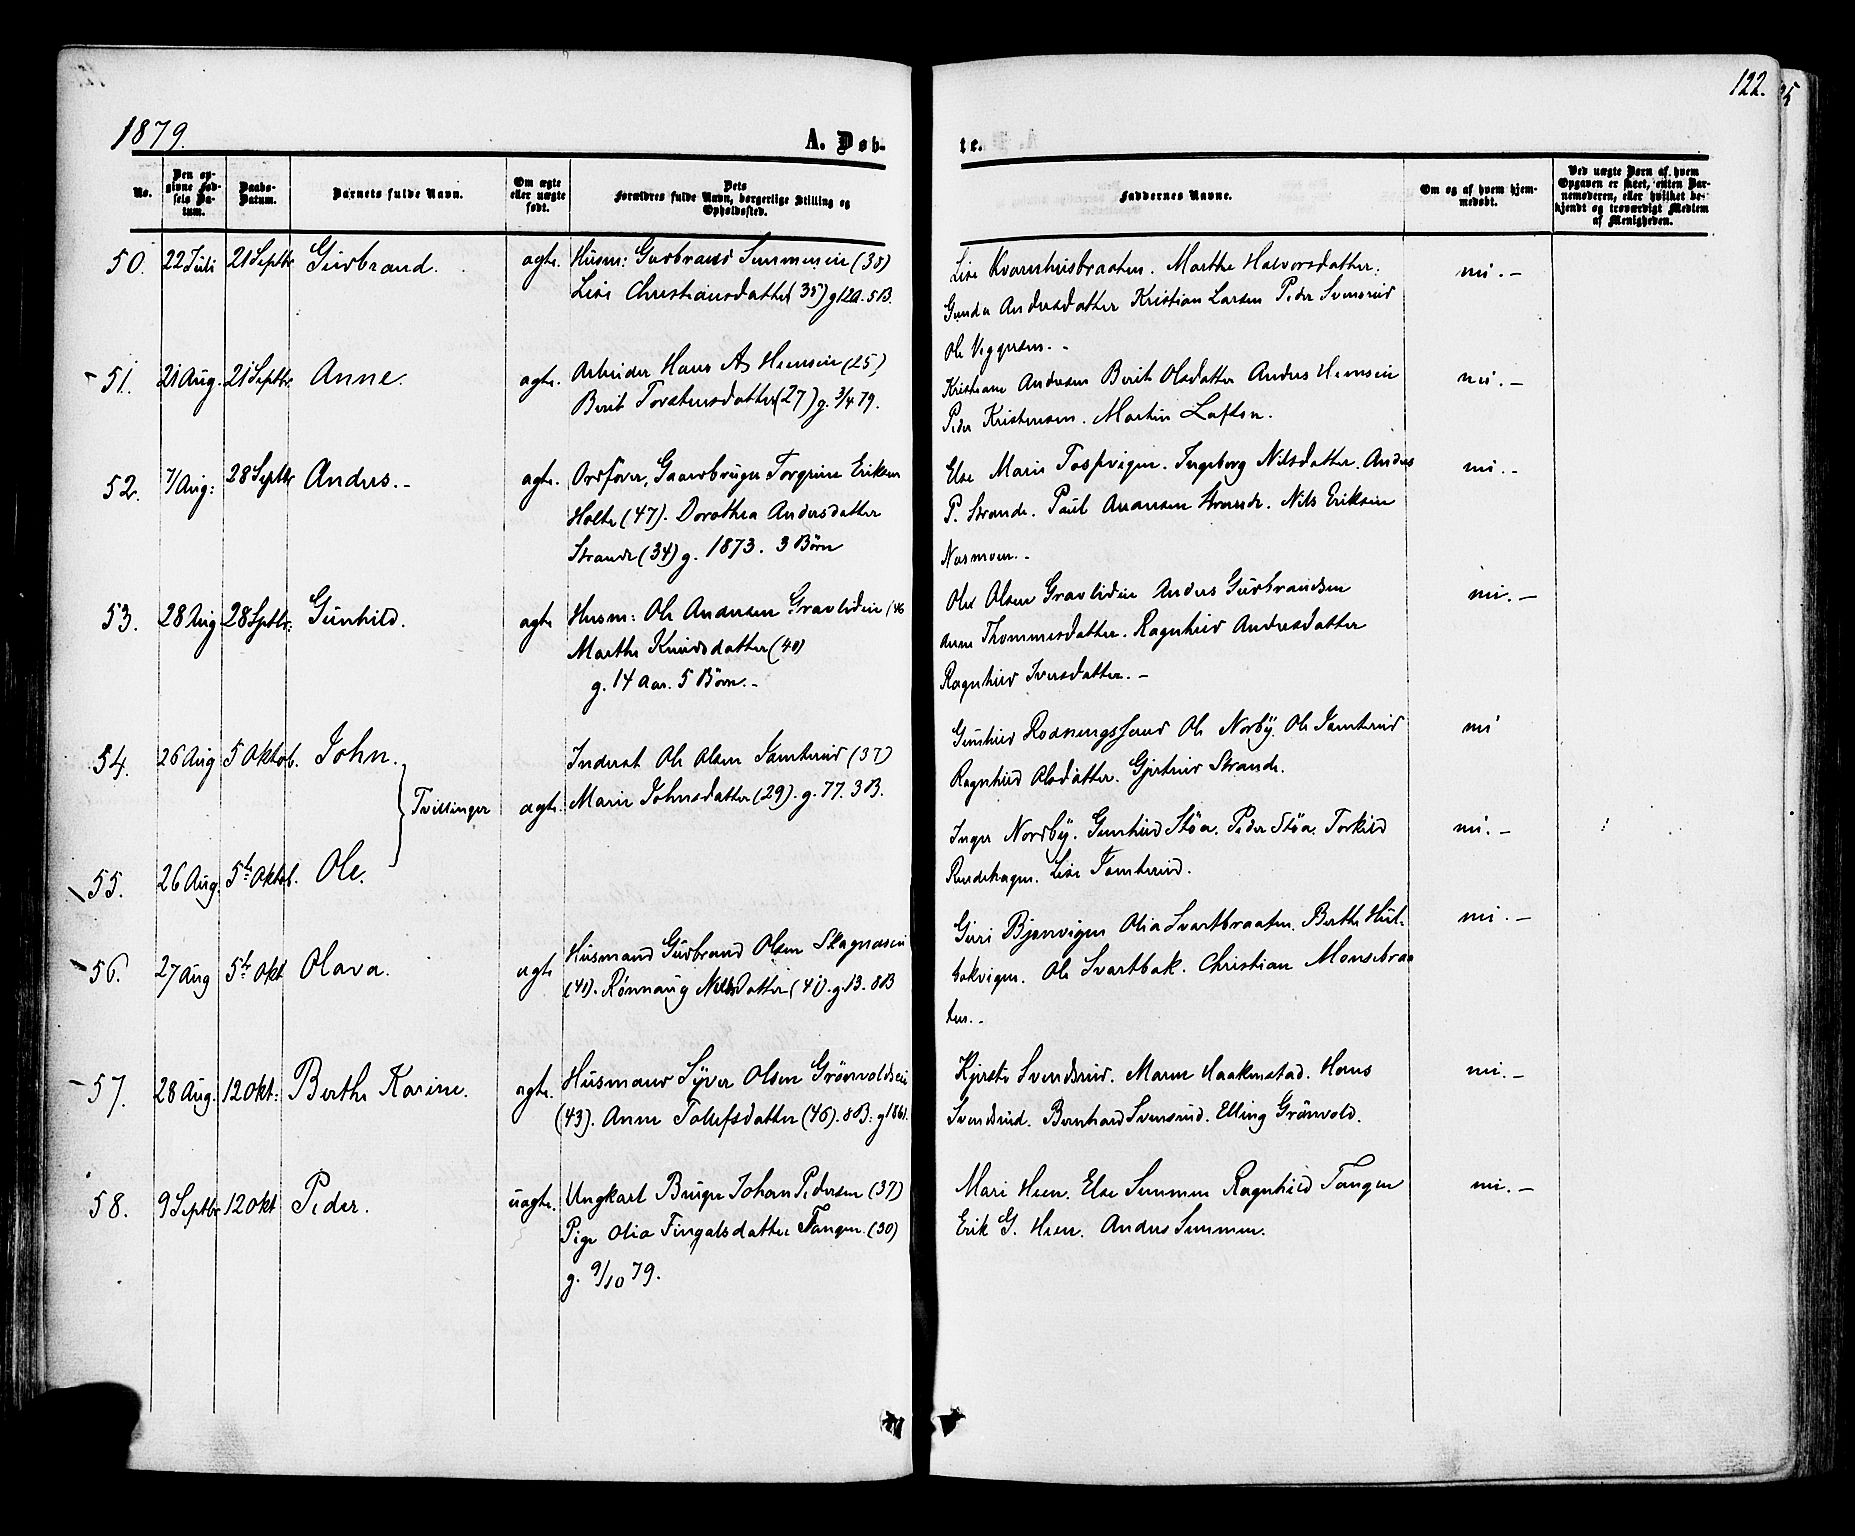 122.
1879.
A. Døb-
te.
No.
Den op-
givne Fød-
sels Da-
tum.
Daabs-
Datum.
Barnets fulde Navn.
Om ægte
eller uægte
født.
Dets
Forældres fulde Navn, borgerlige Stilling og
Opholdssted.
Faddernes Navne.
Om og af hvem hjem-
medøbt.
Ved uægte Børn af hvem
Opgaven er skeet, enten Bar-
nemoderen, eller hvilket be-
kjendt og troværdigt Medlem
af Menigheden.
50. 22 Juli 21 Septbr Gudbrand. ægte. Husm: Gudbrand Simmensen (38)
Lise Christiansdatter (35) g 12 a. 5 B.
Lise Kvarnhusbraaten. Marthe Halvorsdatter:
Gunda Andersdatter Kristian Larsen Peder Svensrud
Ole Viggersen. -
ni. -
51. 21 Aug. 21 Septbr Anne. ægte. Arbeider Hans A Hemsen (25)
Berit Torstensdatter (27) g. 3/4 79.
Kristiane Andersen Berit Olsdatter Anders Hemsen
Peder Kristensen. Martin Loften.
ni. -
52. 7/Aug: 28 Septbr Anders. - ægte. Ordfører, Gaardbruger Torgrim Eriksen
Holte (47). Dorothea Andersdatter
Strande (34) g. 1873. 3 Børn
Else Marie Tospvigen. Ingeborg Nilsdatter. Anders
P. Strande. Paul Anansen Strande. Nils Eriksen
Nasmoen. -
ni. -
53. 28 Aug 28 Septbr: Gunhild. ægte Husm: Ole Andersen Gravlidien (46
Marthe Knudsdatter (40)
g. 14 Aar. 5 Børn. -
Ole Olsen Gravlidien Anders Gudbrandsen
Anne Thommesdatter. Ragnhild Andersdatter
Ragnhild Iversdatter. -
ni. -
54. 26 Aug 5 Oktob. John. Inderst Ole Olsen Tamterud (37)
Tvillinger ægte. Marie Johnsdatter (29). g. 77. 3 B.
Gunhild Rodningssand Ole Norby. Ole Tamterud
Ragnhild Olsdatter. Gjertrud Strande.
ni
55. 26 Aug. 5te Oktob. Ole.
Inger Nordby. Gunhild Støa. Peder Støa. Torkild
Rudehagen. Lise Tamterud.
ni. -
56. 27 Aug 5te Okt Olava. ægte Husmand Gudbrand Olsen Skagnæseie
(41). Rønnaug Nilsdatter (41). g. 13. 8 B
Guri Bjønvigen Olia Svartbraaten. Berthe Hul-
bakvigen. Ole Svartbak. Christian Monsebraa
ten. -
ni. -
57. 28 Aug. 12 Okt: Berthe Karine. ægte. Husmand Syver Olsen Grønvoldseie
(43). Anne Tollefsdatter (46). 8 B. g 1861.
Kjersti Svendsrud. Maren Haakenstad. Hans
Svendsrud. Bernhard Svensrud. Elling Grønvold.
ni. -
58. 9 Septbr 12 Okt Peder. uægte. Ungkarl Bruger Johan Pedersen (37)
Pige Olia Fingalsdatter Tangen (30)
g. 9/10 79.
Mari Heen. Else Simmen Ragnhild Tangen
Erik G. Heen. Anders Simmen.
ni. -